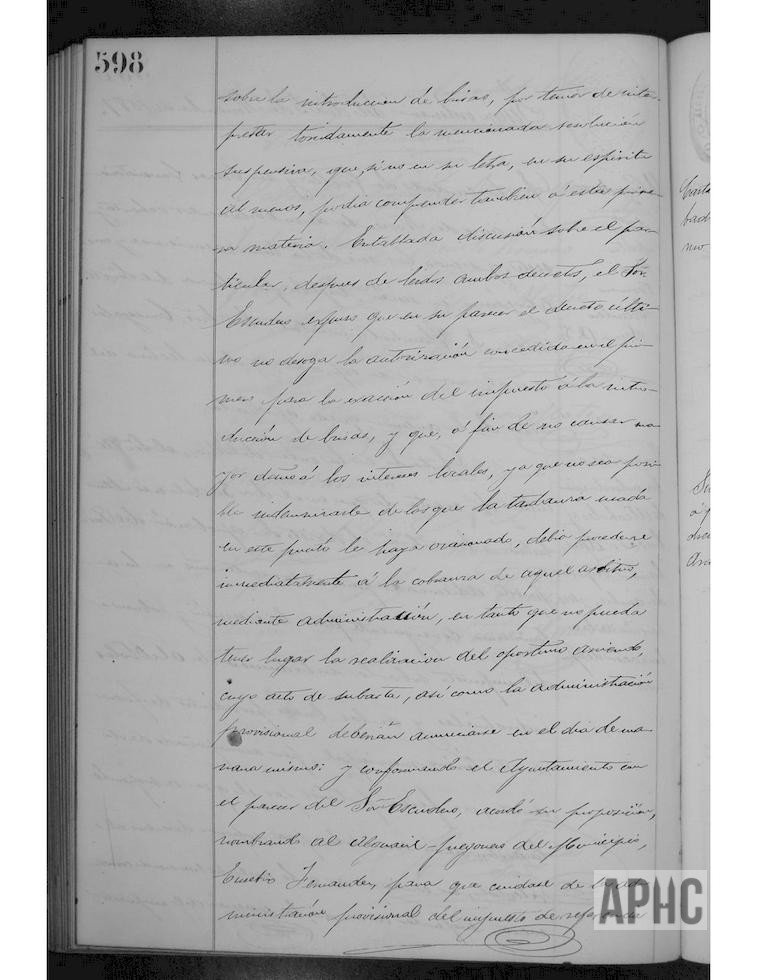 598
sobre la introduccion de brisas, por temor de inter-
pretar torcidamente la mencionada resolución
suspensiva, que, si no en su letra, en su espiritu
al menos, podia comprender tambien á esta prime-
ra materia. Entablada discusión sobre el par-
ticular, despues de leidos ambos decretos, el Sor.
Escudero expuso que en su parecer el decreto últi-
mo no deroga la autorización concedida en el pri-
mero para la exacción del impuesto á la intro-
ducción de brisas, y que, á fin de no causar ma-
yor daño á los intereses locales, ya que no sea posi-
ble indemnizarle de los que la tardanza usada
en este punto le haya ocasionado, debia procederse
inmediatamente á la cobranza de aquel arbitrio,
mediante administración, en tanto que no pueda
tener lugar la realizacion del oportuno arriendo,
cuyo acto de subasta, así como la administración
provisional deberián anunciarse en el dia de ma-
ñana mismo: y conformando el Ayuntamiento con
el parecer del Sor. Escudero, acordó su proposición,
nombrando al alguacil-pregonero del Municipio,
Eusebio Fernandez, para que cuidase de la ad-
ministración provisional del impuesto de referencia
APHC